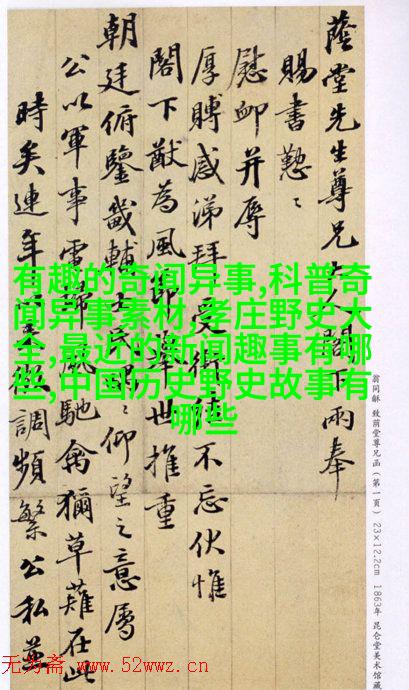 蔭堂先生尊兄大人閣下兩奉
賜書懃〻
慰卹并辱
厚賻感涕拜受銜德不忘伏惟
閣下猷為風節舉世推重
朝廷俯鑒畿輔士民〻仰望之意屬
公以軍事電掃風馳禽獮草薙在此
時矣連年徵調頻繁公私並
有趣的奇闻异事,科普奇
闻异事素材,孝庄野史大
全,最近的新闻趣事有哪
些,中国历史野史故事有
哪些
翁同龢 致蔭堂尊兄函（第一頁） 23×12.2cm 1863年 昆仑堂美术馆藏
无为斋 www.52wwz.cn